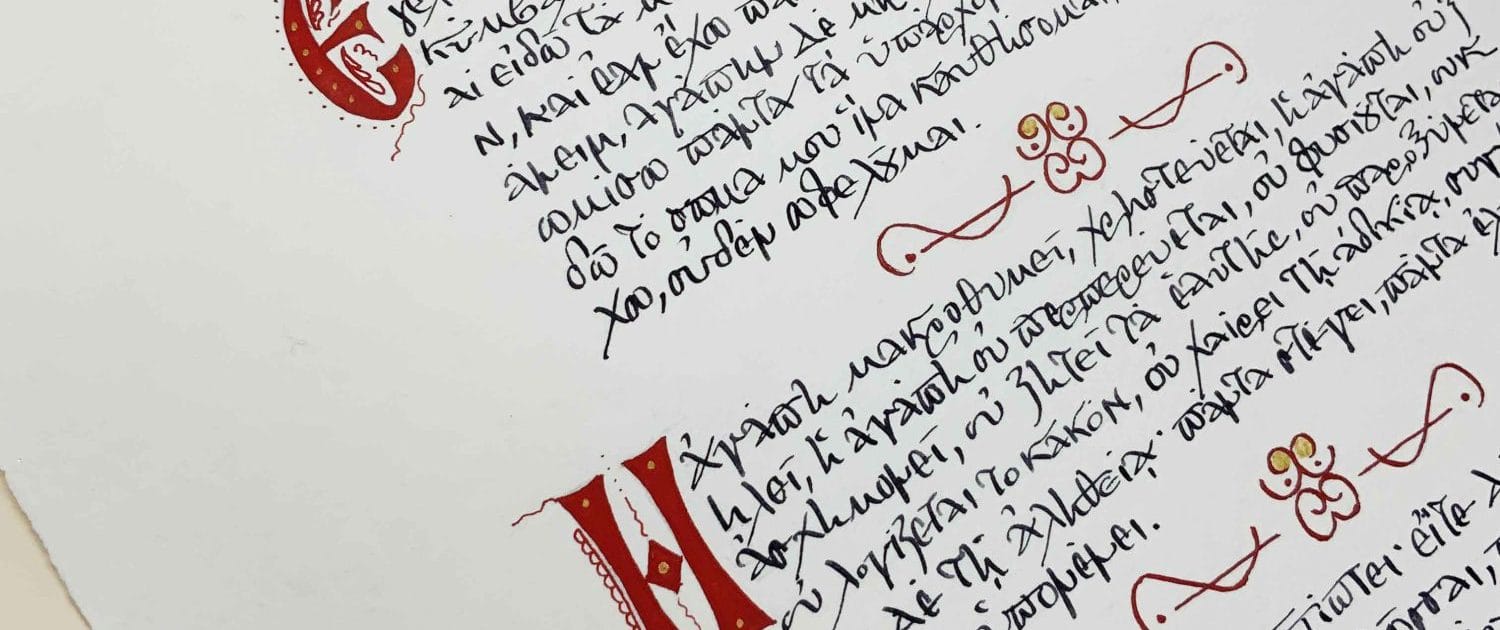 κύμβα
αὶ εἰδῶ τὰ
ν, καὶ ἐὰν ἔχω πᾶ
άνειν, ἀγάπην δὲ μὴ
ωμίσω πάντα τὰ ὑπάρχο
δῶ τὸ σῶμά μου ἵνα καυθήσωμαι,
χω, οὐδὲν ὠφελοῦμαι.
Ἡ ἀγάπη μακροθυμεῖ, χρηστεύεται, ἡ ἀγάπη οὐ ζ
ηλοῖ, ἡ ἀγάπη οὐ περπερεύεται, οὐ φυσιοῦται, οὐκ
ἀσχημονεῖ, οὐ ζητεῖ τὰ ἑαυτῆς, οὐ παροξύνετα
οὐ λογίζεται τὸ κακόν, οὐ χαίρει τῇ ἀδικίᾳ, συγ
δὲ τῇ ἀληθείᾳ· πάντα στέγει, πάντα
ὑπομένει.
πίπτει· εἴτε